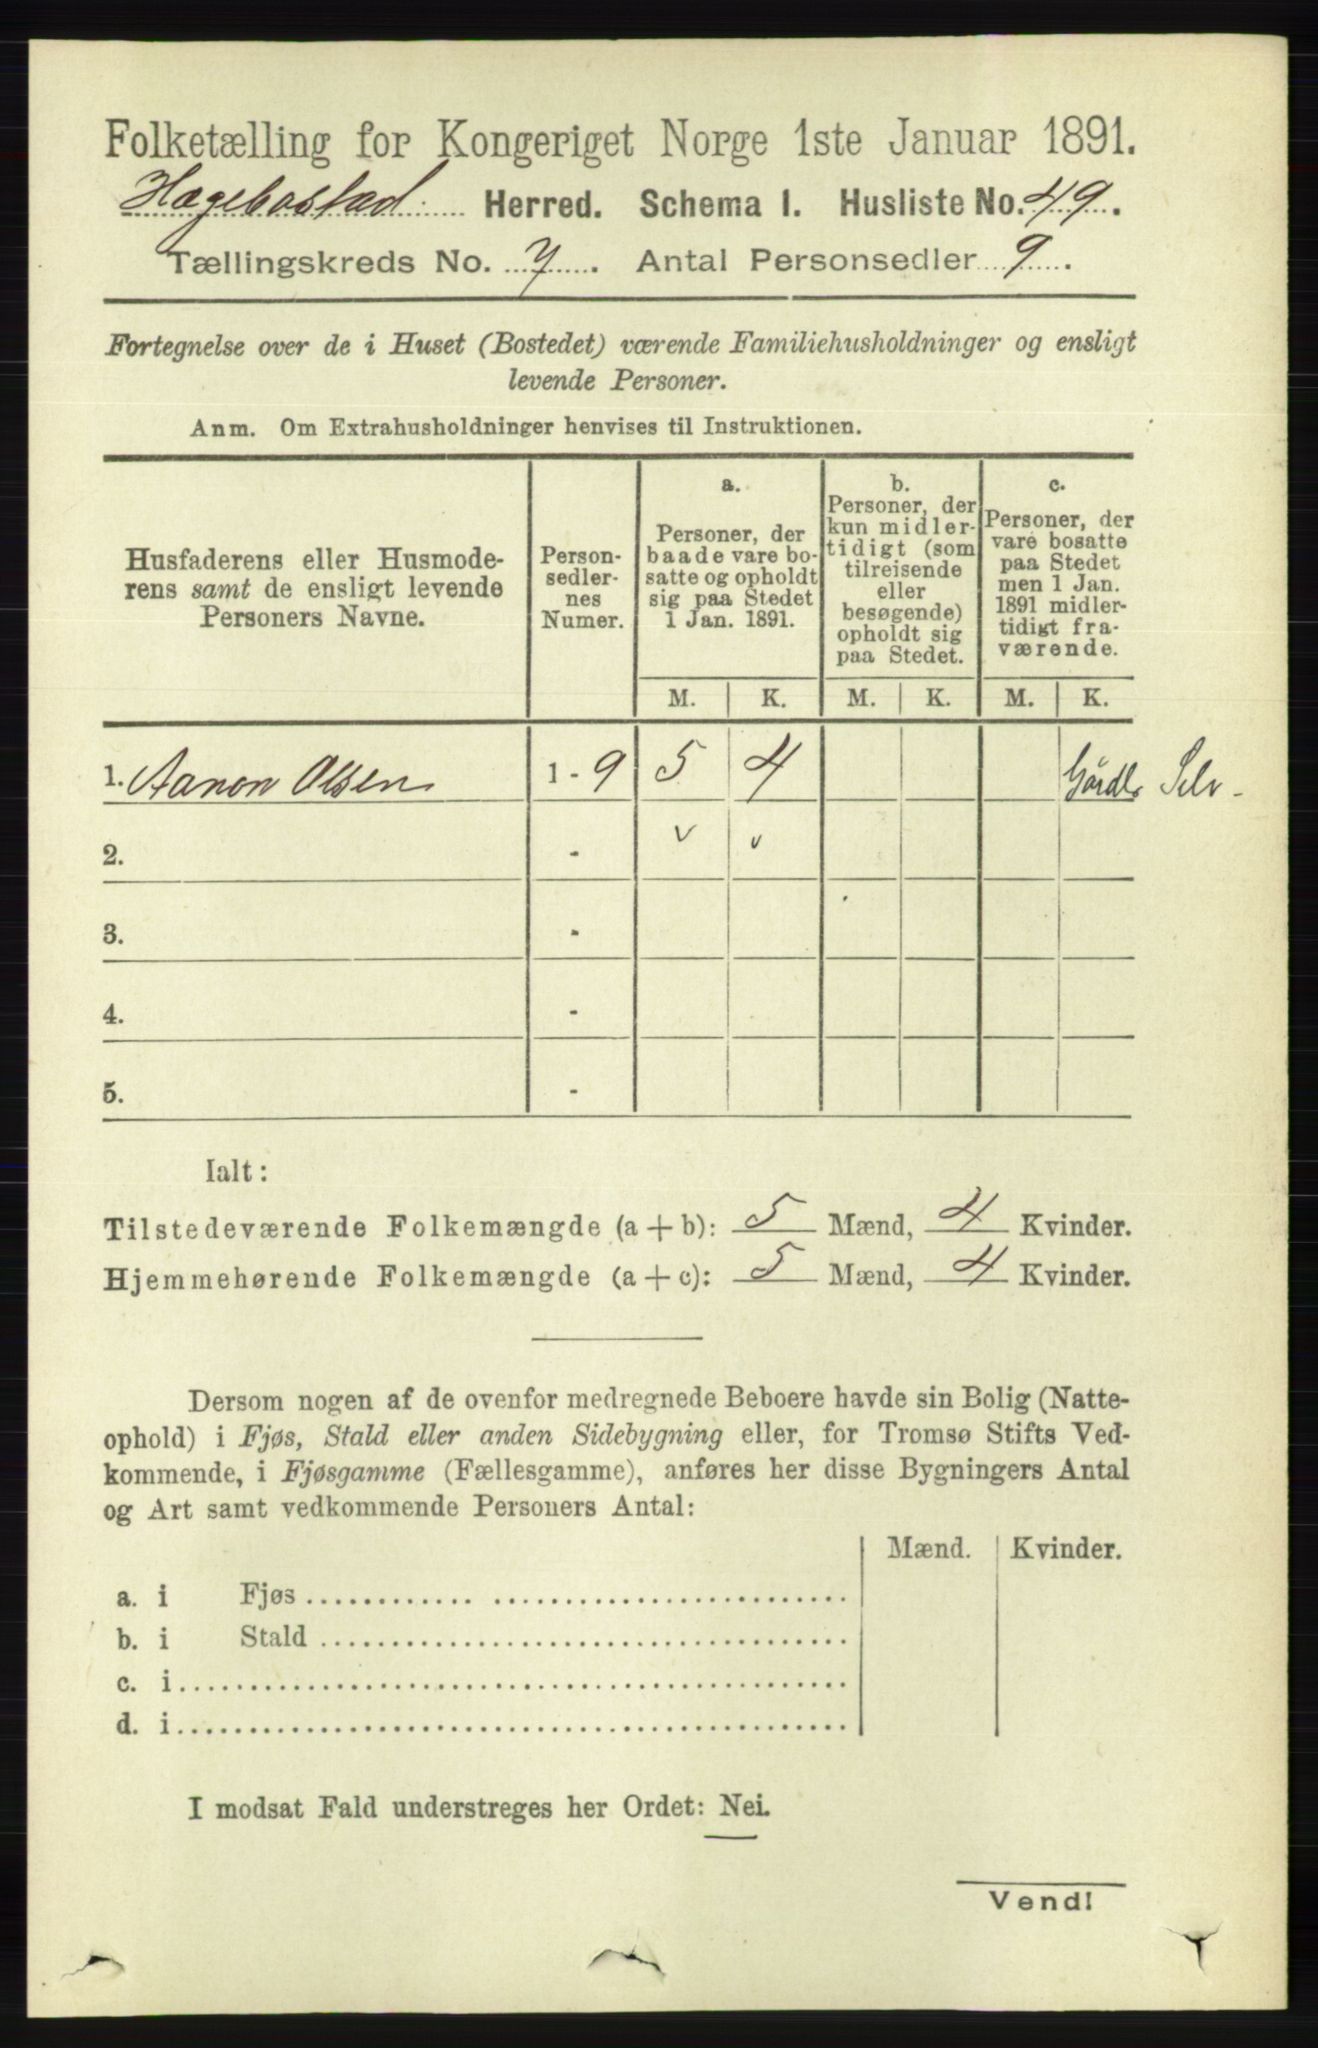 Folketælling for Kongeriget Norge 1ste Januar 1891.
Hægebostad Herred. Schema I. Husliste No. 49.
Tællingskreds No. 7. Antal Personsedler 9.
Fortegnelse over de i Huset (Bostedet) værende Familiehusholdninger og ensligt
levende Personer.
Anm. Om Extrahusholdninger henvises til Instruktionen.
Husfaderens eller Husmode-
rens samt de ensligt levende
Personers Navne.
Person-
sedler-
nes
Numer.
a.
Personer, der
baade vare bo-
satte og opholdt
sig paa Stedet
1 Jan. 1891.
b.
Personer, der
kun midler-
tidigt (som
tilreisende
eller
besøgende)
opholdt sig
paa Stedet.
c.
Personer, der
vare bosatte
paa Stedet
men 1 Jan.
1891 midler-
tidigt fra-
værende.
M. K. M. K. M. K.
1. Aanon Olsen 1 - 9 5 4 Gårdb Selv
2. - v v
3. -
4. -
5. -
Ialt:
Tilstedeværende Folkemængde (a + b): 5 Mænd, 4 Kvinder.
Hjemmehørende Folkemængde (a + c): 5 Mænd, 4 Kvinder.
Dersom nogen af de ovenfor medregnede Beboere havde sin Bolig (Natte-
ophold) i Fjøs, Stald eller anden Sidebygning eller, for Tromsø Stifts Ved-
kommende, i Fjøsgamme (Fællesgamme), anføres her disse Bygningers Antal
og Art samt vedkommende Personers Antal:
Mænd. Kvinder.
a. i Fjøs
b. i Stald
c. i
d. i
I modsat Fald understreges her Ordet: Nei.
Vend!